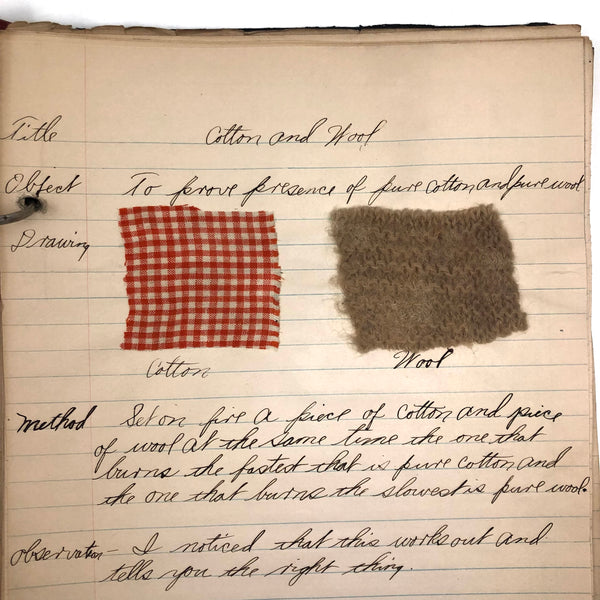 Title Cotton and Wool
Object To prove presence of pure cotton and pure wool
Drawing
Cotton Wool
Method Set on fire a piece of cotton and piece
of wool at the same time the one that
burns the fastest that is pure cotton and
the one that burns the slowest is pure wool.
Observation - I noticed that this works out and
tells you the right thing.